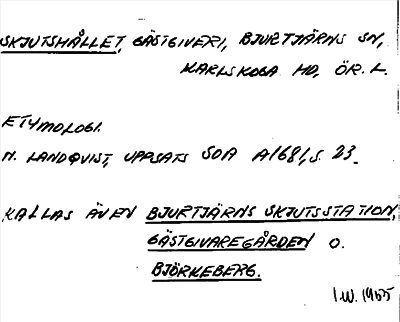 SKJUTSHÅLLET, GÄSTGIVERI, BJURTJÄRNS SN,
KARLSKOGA HD, ÖR. L.
ETYMOLOGI.
N. LANDQVIST, UPPSATS SOA A1681, S. 23.
KALLAS ÄVEN BJURTJÄRNS SKJUTSSTATION,
GÄSTGIVAREGÅRDEN O.
BJÖRKEBERG.
I.W. 1955